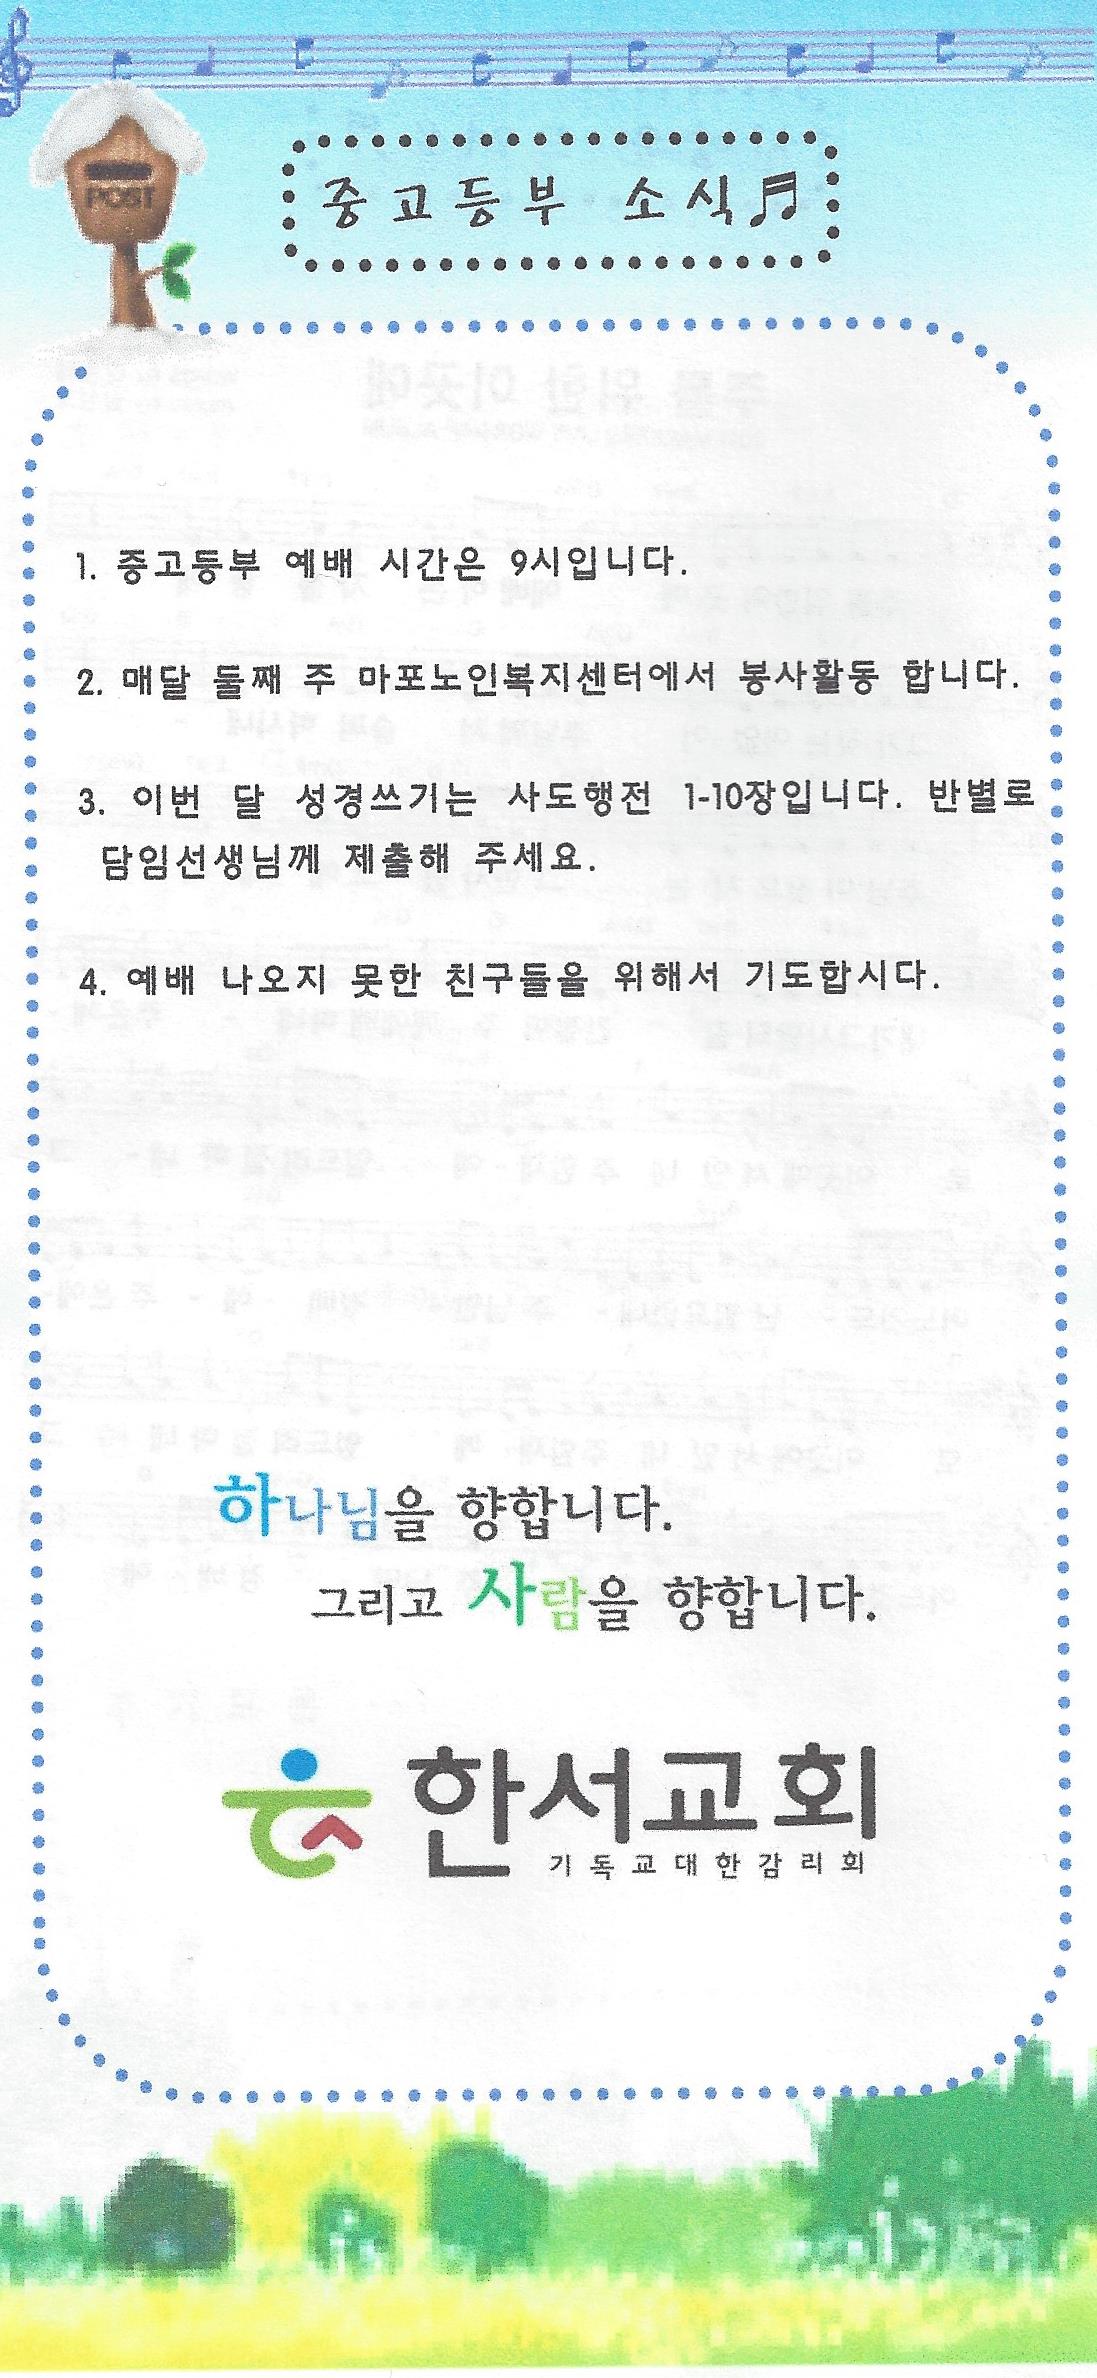 POST
중고등부 소식♬
1. 중고등부 예배 시간은 9시입니다.
2. 매달 둘째 주 마포노인복지센터에서 봉사활동 합니다.
3. 이번 달 성경쓰기는 사도행전 1-10장입니다. 반별로
담임선생님께 제출해 주세요.
4. 예배 나오지 못한 친구들을 위해서 기도합시다.
하나님을 향합니다.
그리고 사람을 향합니다.
한서교회
기독교대한감리회